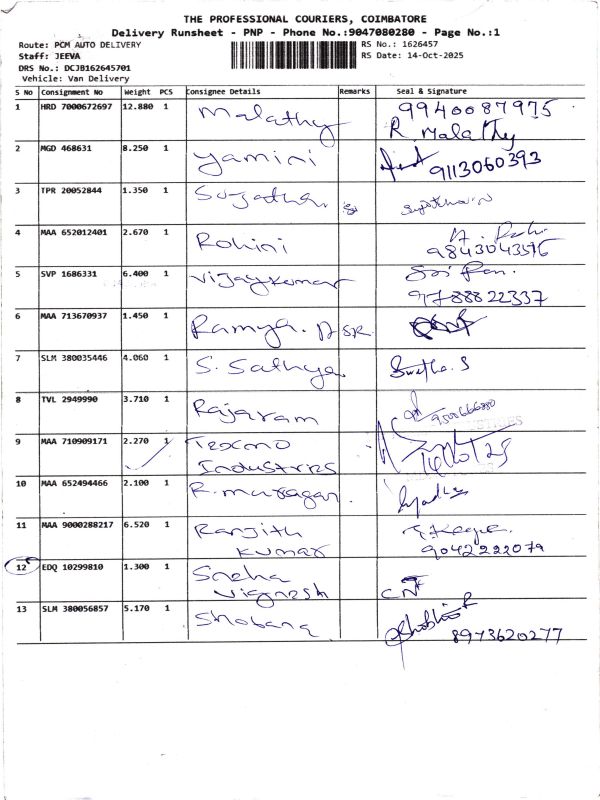 THE PROFESSIONAL COURIERS, COIMBATORE
Delivery Runsheet - PNP - Phone No.:9047080280 - Page No.:1
Route: PCM AUTO DELIVERY
RS No.: 1626457
Staff: JEEVA
RS Date: 14-Oct-2025
DRS No.: DCJB162645701
Vehicle: Van Delivery
S No Consignment No Weight PCS Consignee Details Remarks Seal & Signature
1 HRD 7000672697 12.880 1 Malathy 9940087975
R. Malathy
2 MGD 468631 8.250 1 Yamini 9113060393
3 TPR 20052844 1.350 1 Sujatha
4 MAA 652012401 2.670 1 Rohini
9843043516
5 SVP 1686331 6.400 1 Vijaykumar Sri
9788822337
6 MAA 713670937 1.450 1 Ramya.
7 SLM 380035446 4.060 1 S. Sathya Swetha. S
8 TVL 2949990 3.710 1 Rajaram
9 MAA 710909171 2.270 1 Texmo
Industries
10 MAA 652494466 2.100 1 R. murugan.
11 MAA 9000288217 6.520 1 Ranjith
kumar 9042222079
12 EDQ 10299810 1.300 1 Sneha
Vignesh
13 SLM 380056857 5.170 1 Shobana
8973620277